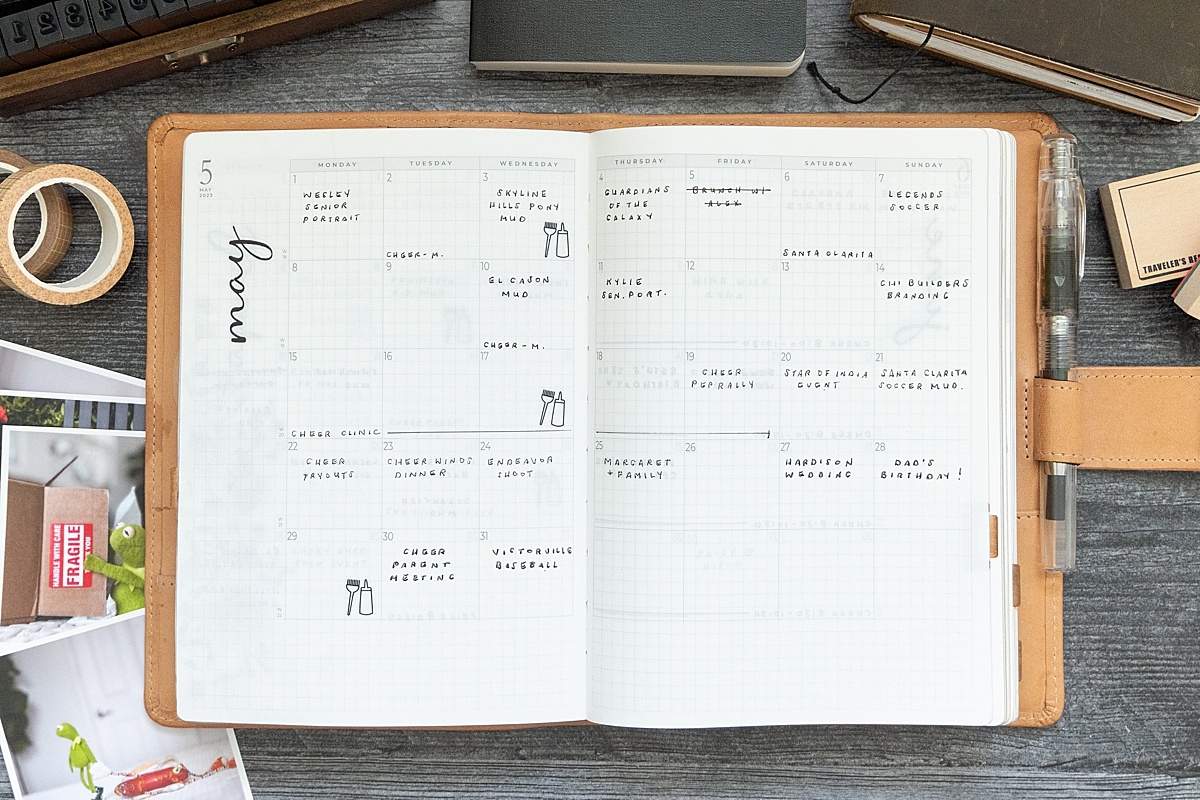 5
MAY
2023
may
MONDAY
TUESDAY
WEDNESDAY
THURSDAY
FRIDAY
SATURDAY
SUNDAY
1
WESLEY
SENIOR
PORTRAIT
2
CHEER-M.
3
SKYLINE
HILLS PONY
MUD
4
GUARDIANS
OF THE
GALAXY
5
BRUNCH W/
ALEX
6
SANTA CLARITA
7
LEGENDS
SOCCER
8
9
10
EL CAJON
MUD
CHEER-M.
11
KYLIE
SEN. PORT.
12
13
14
CHI BUILDERS
BRANDING
15
CHEER CLINIC
16
17
18
19
CHEER
PEP RALLY
20
STAR OF INDIA
EVENT
21
SANTA CLARITA
SOCCER MUD.
22
CHEER
TRYOUTS
23
CHEER WINDS
DINNER
24
ENDEAVOR
SHOOT
25
MARGARET
+ FAMILY
26
27
HARDISON
WEDDING
28
DAD'S
BIRTHDAY!
29
30
CHEER
PARENT
MEETING
31
VICTORVILLE
BASEBALL
HANDLE WITH CARE
FRAGILE
TRAVELER'S